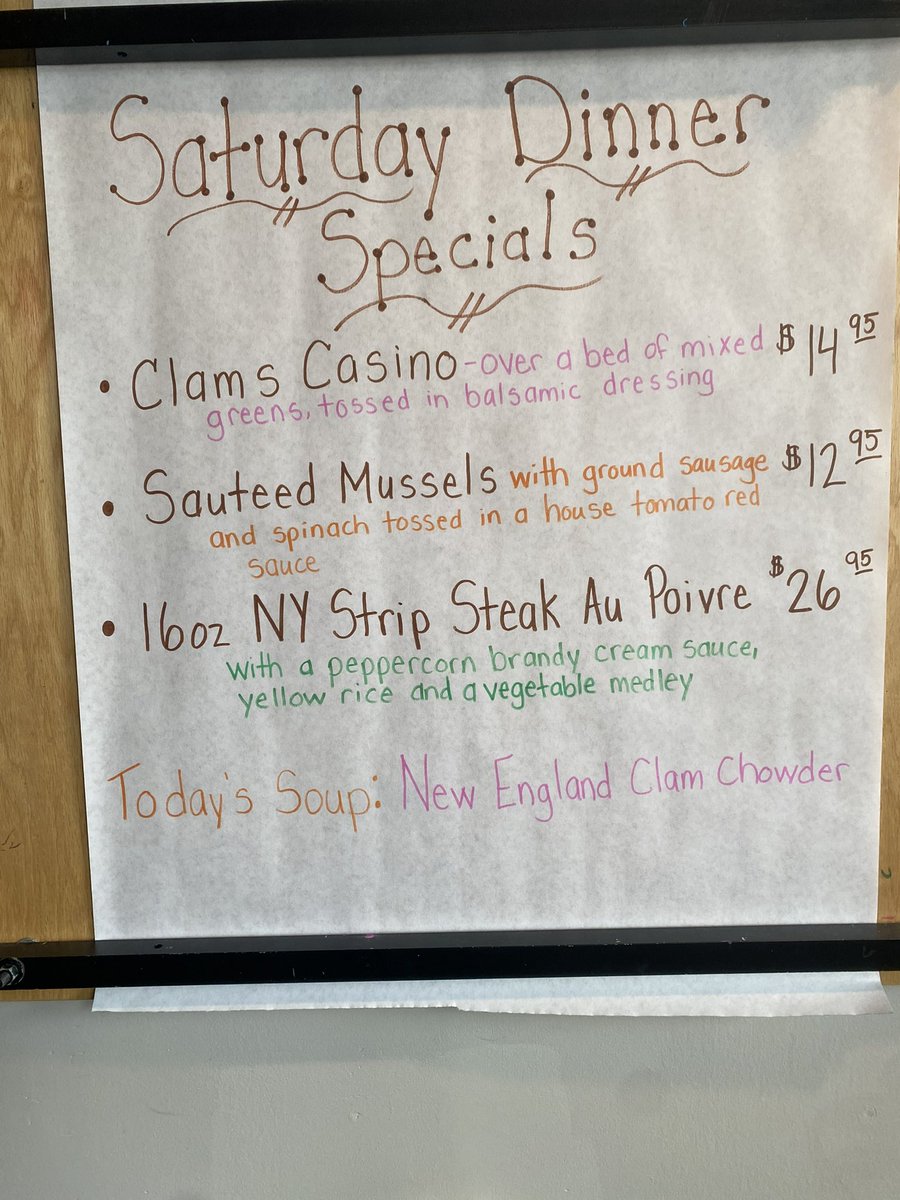 Saturday Dinner
Specials
• Clams Casino - over a bed of mixed $14.95
greens, tossed in balsamic dressing
• Sauteed Mussels with ground sausage $12.95
and spinach tossed in a house tomato red
sauce
• 16oz NY Strip Steak Au Poivre $26.95
with a peppercorn brandy cream sauce,
yellow rice and a vegetable medley
Today's Soup: New England Clam Chowder